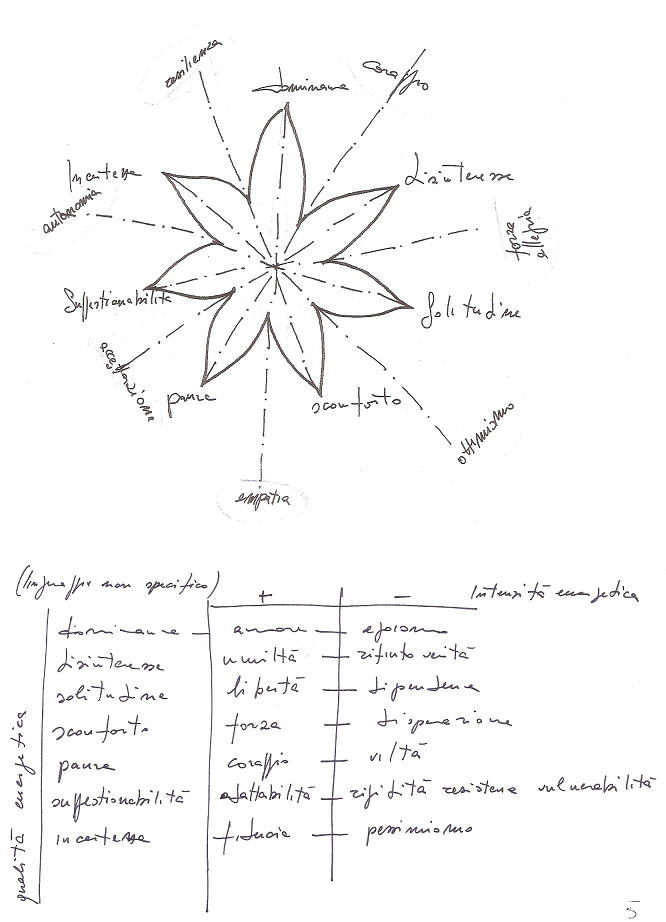 resilienza
dominanza
coraggio
Incertezza
disinteresse
autonomia
forza
allegria
Suggestionabilità
Solitudine
accettazione
paura
sconforto
ottimismo
empatia
(linguaggio non specifico) + - Intensità energetica
dominanza - amore - egoismo
disinteresse umiltà - rifiuto verità
solitudine libertà - dipendenza
sconforto forza - disperazione
paura coraggio - viltà
suggestionabilità adattabilità - rigidità resistenza vulnerabilità
incertezza fiducia - pessimismo
qualità energetica
5